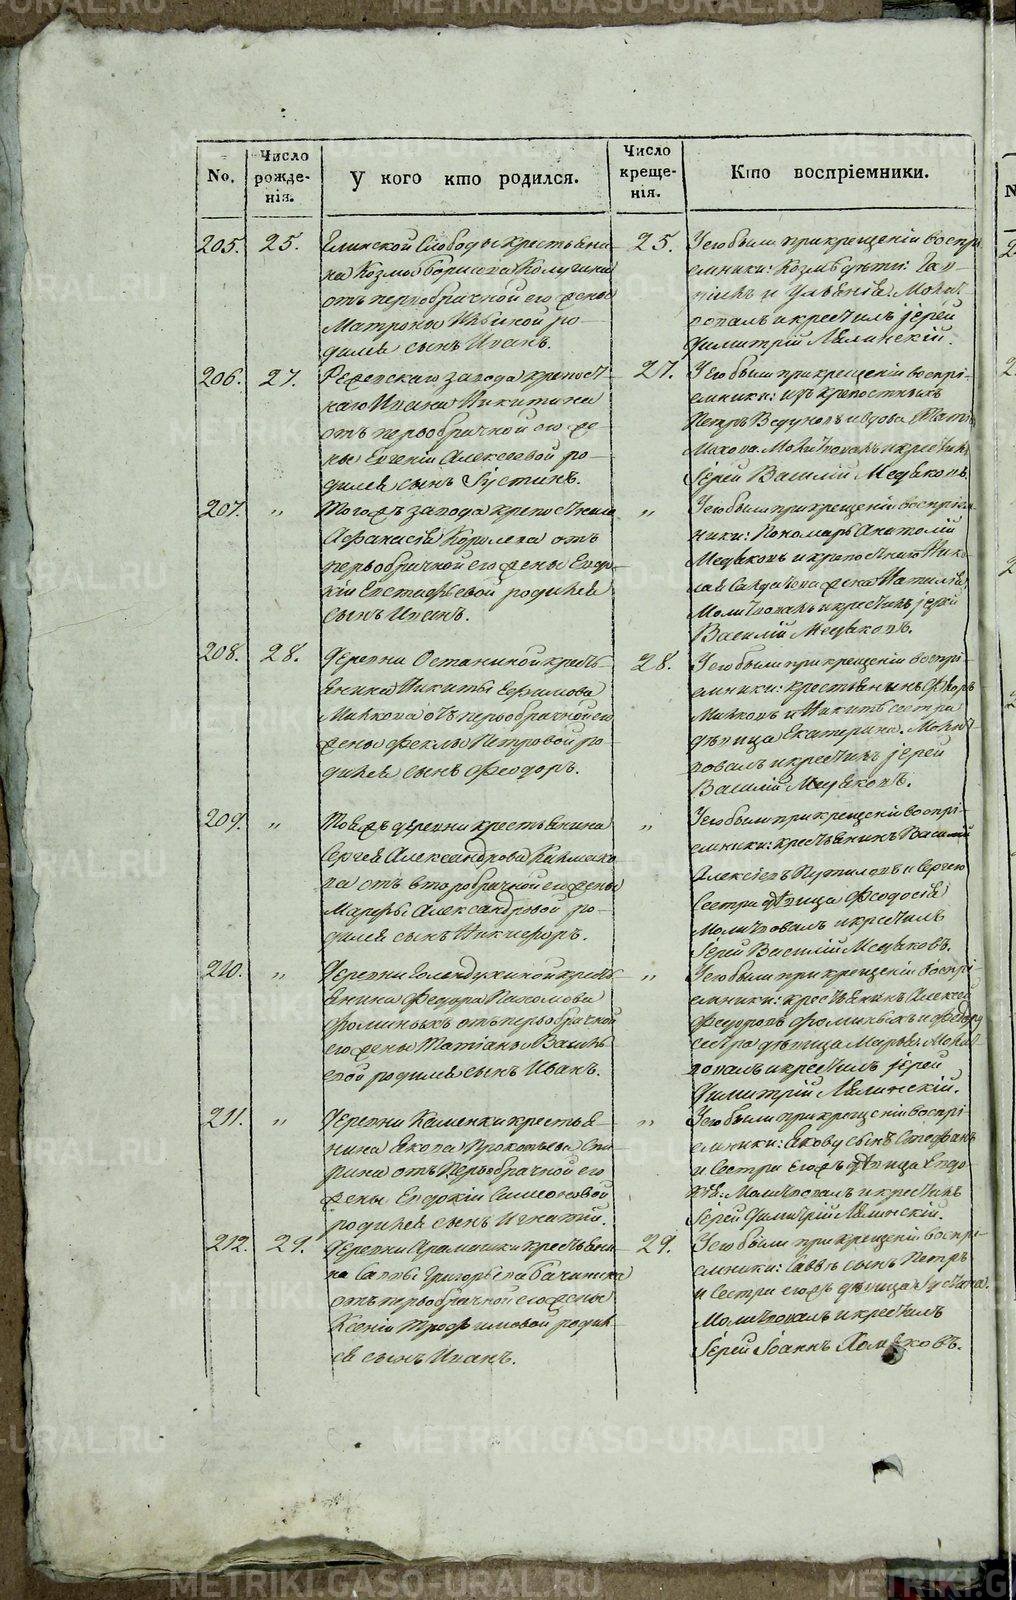 METRIKI.GASO-URAL.RU
No.
Число рожде-нія.
У кого кто родился.
Число креще-нія.
Кто воспріемники.
205. 25.
Слободы крестьяни-
на Козмы Борисова
отъ первобрачной его жены
Матроны ро-
дился сынъ Иванъ.
25. У его были при крещеніи воспрі-
емники: Козмы дѣти:
и Молит-
вовалъ и крестилъ іерей
Димитрій Лялинскій.
206. 27.
Режевскаго завода крепост-
наго Ивана Никитина
отъ первобрачной его же-
ны Евгеніи Алексеевой ро-
дился сынъ Іустинъ.
27. У его были при крещеніи воспрі-
емники: изъ крепостныхъ
Петръ и вдова
Молитвовалъ и крестилъ
Іерей Василій Медяковъ.
207. „
Тогожъ завода крепостнаго
Афанасія Королева отъ
первобрачной его жены Евдо-
кіи Евстафьевой родился
сынъ Иванъ.
„ У его были при крещеніи воспріем-
ники: Пономарь Анатолій
Медяковъ и крепостнаго Нико-
лая жена Наталія
Молитвовалъ и крестилъ іерей
Василій Медяковъ.
208. 28.
Деревни Останиной кресть-
янина Никиты Ефимова
отъ первобрачной его
жены Феклы Петровой ро-
дился сынъ Феодоръ.
28. У его были при крещеніи воспрі-
емники: крестьянинъ
и Никиты сестра
дѣвица Екатерина. Молит-
вовалъ и крестилъ іерей
Василій Медяковъ.
209. „
Тояжъ деревни крестьянина
Сергея Александрова
ва отъ второбрачной его жены
Марфы Александровой ро-
дился сынъ Никифоръ.
„ У его были при крещеніи воспрі-
емники: крестьянинъ Василій
Алексіевъ Путиловъ и Сергею
Сестра дѣвица Феодосія
Молитвовалъ и крестилъ
Іерей Василій Медяковъ.
210. „
Деревни Голендухиной кресть-
янина Федора Пахомова
Фоминыхъ отъ первобрачной
его жены Татіаны Василь-
евой родился сынъ Иванъ.
„ У его были при крещеніи воспрі-
емники: крестьянинъ Алексей
Федоровъ Фоминыхъ и Федору
сестра дѣвица Марья. Молит-
вовалъ и крестилъ іерей
Димитрій Лялинскій.
211. „
Деревни Каменки крестья-
нина Якова Прокопьева
отъ первобрачной его
жены Евдокіи Симеоновой
родился сынъ Игнатій.
„ У его были при крещеніи воспрі-
емники: Якову сынъ Стефанъ
и Сестра Егожъ дѣвица Евдо-
кія. Молитвовалъ и крестилъ
Іерей Димитрій Лялинскій.
212. 29.
Деревни крестьяни-
на Саввы Григорьева Бачинина
отъ первобрачной его жены
Ксеніи Трофимовой родил-
ся сынъ Иванъ.
29. У его были при крещеніи воспрі-
емники: Саввы сынъ Петръ
и Сестра егожъ дѣвица Іустина.
Молитвовалъ и крестилъ
Іерей Іоаннъ Хомяковъ.